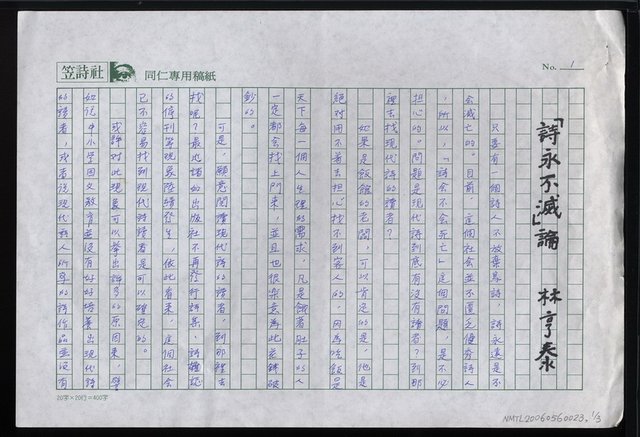 笠詩社 同仁專用稿紙
No. 1
「詩永不滅」論 林亨泰
只要有一個詩人不放棄寫詩，詩永遠是不
會滅亡的。目前，這個社會並不匱乏優秀詩人
，所以，「詩會不會死亡」這個問題，是不必
担心的。問題是現代詩到底有沒有讀者？到那
裡去找現代詩的讀者？
如果是飯館的老闆，可以肯定的是，他是
絕對用不着去担心找不到客人的，因為吃飯是
天下每一個人生理的需求，凡是餓着肚子的人
一定都會找上門來，並且也很樂意為此差錢破
鈔的。
可是，願意閱讀現代詩的讀者，到那裡去
找呢？最近諸如出版社不再發行詩集，詩雜誌
的停刊等現象陸續發生，依此看來，這個社會
已不容易找到現代詩讀者是可以確定的。
或許對此現象可以舉出許多的原因來，譬
如說中小学國文教育並沒有好好培養出現代詩
的讀者，或者說現代詩人所寫的詩作品並沒有
20字×20行=400字
NMTL20060560023. 1/3